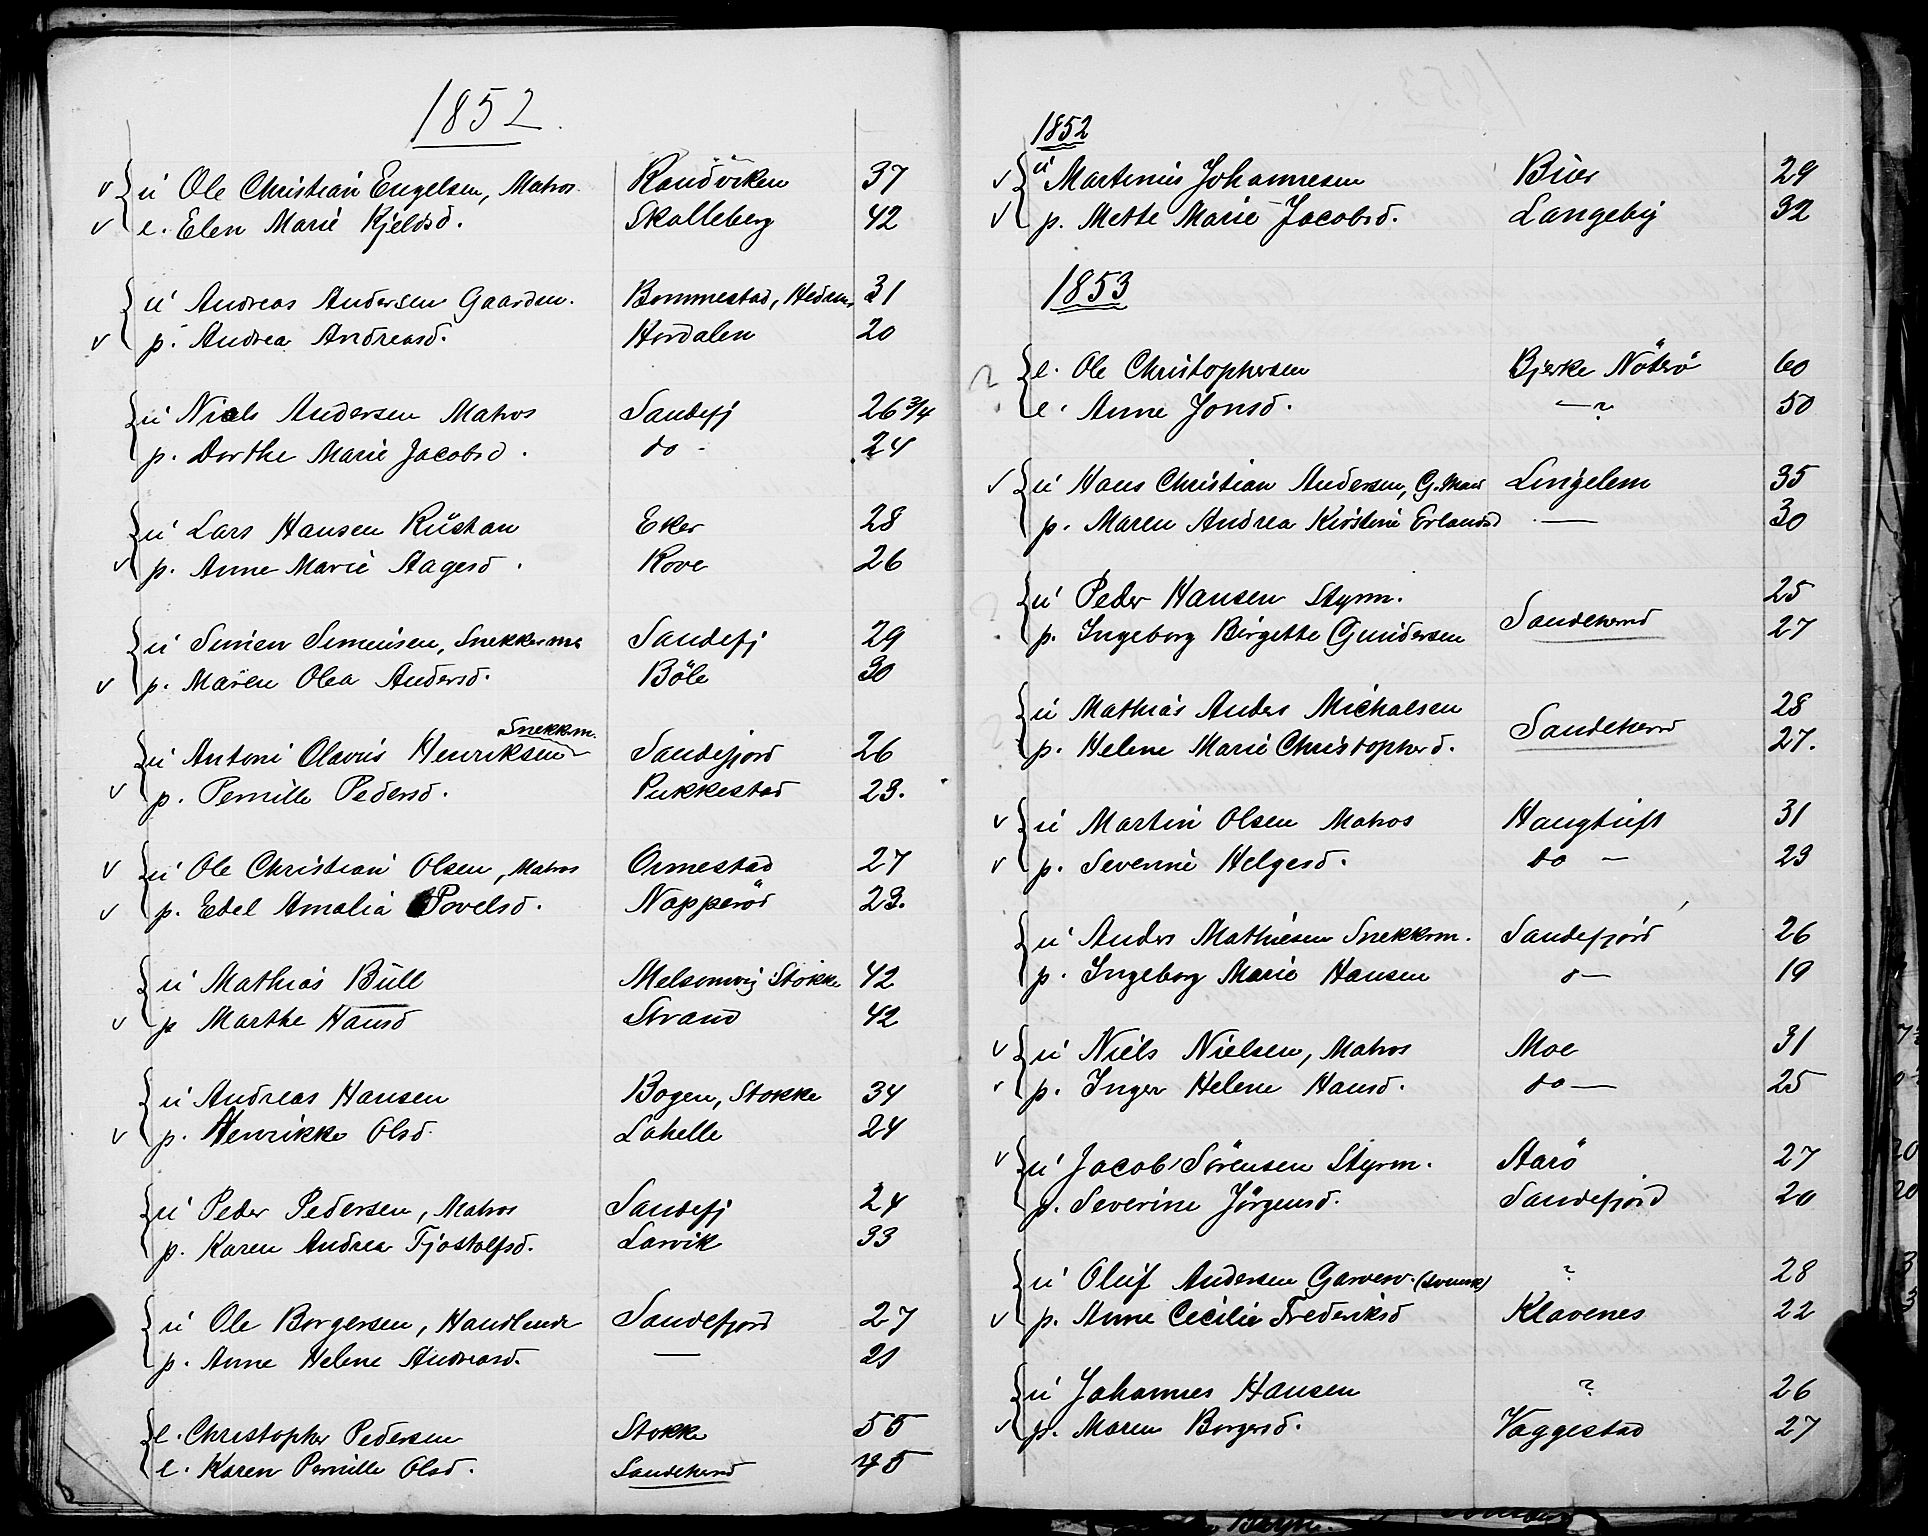 1852.
ú Ole Christian Engelsen, Matros. Ranvöiken 37
e. Elen Marie Kjeldsd. Skalleberg 42
ú Andreas Andersen Gaardm. Bommestad, Hedrum 31
p. Andrea Andreasd. Hördalen 20
ú Niels Andersen Matros Sandefj 26 3/4
p. Dorthe Marie Jacobsd. do - 24
ú Lars Hansen Rústan Eker 28
p. Anne Marie Aagesd. Rove 26
ú Simen Simensen, Snekkerm. Sandefj 29
p. Maren Olea Andersd. Böle 30
Snekkm.
ú Antoni Olavús Henriksen Sandefjord 26
p. Pernille Pedersd. Pukkestad 23.
ú Ole Christian Olsen, Matros Ormestad 27
p. Edel Amalia Povelsd. Napperöd 23.
ú Mathias Búll Melsomvig Stokke 42
p Marthe Hansd Strand 42
ú Andreas Hansen Bogen, Stokke 34
p. Henrikke Olsd. Lahelle 24
ú Peder Pedersen, Matros Sandefj 24
p. Karen Andrea Tjostolfsd. Larvik 33
ú Ole Borgersen, Handlende Sandefjord 27
p. Anne Helene Andreasd. — 21
e. Christopher Pedersen Stokke 55
e. Karen Pernille Olsd. Sandeherred 45
1852
ú Martinius Johannesen Búer 29
p. Mette Marie Jacobsd. Langeby 32
1853
? e. Ole Christophersen Bjerke Nöterö 60
e. Anne Jonsd. —?— 50
ú Hans Christian Andersen, G.mand Lingelem 35
p. Maren Andrea Kirstine Erlandsd — 30
? ú Peder Hansen Styrm. Sandeherred 25
p. Ingeborg Birgitte Gundersen 27
ú Mathias Anders Michalsen Sandeherred 28
p. Helene Marie Christophersd. 27.
ú Martin Olsen Matros Haugtuft 31
p. Severine Helgesd. do — 23
ú Anders Mathiesen Snekkerm. Sandefjord 26
p. Ingeborg Marie Hansen do— 19
ú Niels Nielsen, Matros Moe 31
p. Inger Helene Hansd. do — 25
ú Jacob Sörensen Styrm. Aarö 27
p. Severine Jörgensd. Sandefjord 20
ú Oluf Andersen Garversv. (svensk) ? 28
p. Anne Cecilie Frederiksd Klavenes 22
ú Johannes Hansen ? 26
p. Maren Borgersd. Vaggestad 27